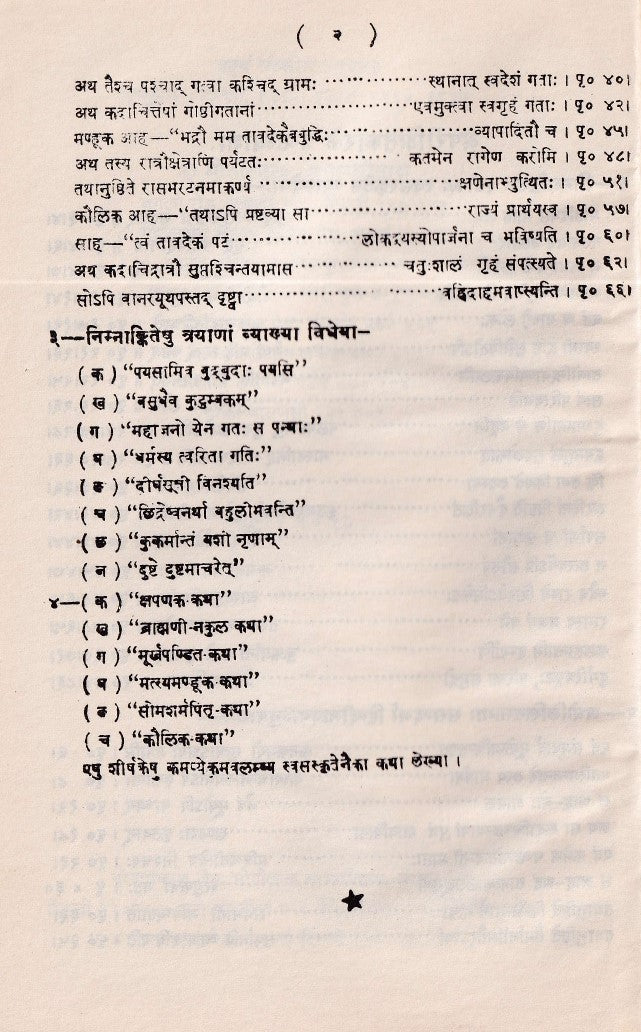 ( २ )
अथ तैश्च पश्चाद् गत्वा कश्चिद् ग्रामः ⋯⋯⋯⋯ स्थानात् स्वदेशं गताः । पृ० ४०।
अथ कदाचित्तेषां गोष्ठीगतानां ⋯⋯⋯⋯ एवमुक्त्वा स्वगृहं गताः । पृ० ४२।
मण्डूक आह—"भद्रौ मम तावदेकैवबुद्धिः ⋯⋯⋯⋯ व्यापादितौ च । पृ० ४५।
अथ तस्य रात्रौक्षेत्राणि पर्यटतः ⋯⋯⋯⋯ कतमेन रागेण करोमि । पृ० ४८।
तथानुष्ठिते रासभरटनमाकर्ण्य ⋯⋯⋯⋯ क्षणेनाभ्युत्थितः । पृ० ५१।
कौलिक आह—"तथाऽपि प्रष्टव्या सा ⋯⋯⋯⋯ राज्यं प्रार्थयस्व । पृ० ५७।
साह—"त्वं तावदेकं पटं ⋯⋯⋯⋯ लोकद्वयस्योपार्जना च भविष्यति । पृ० ६०।
अथ कदाचिद्रात्रौ सुप्तश्चिन्तयामास ⋯⋯⋯⋯ चतुःशालं गृहं संपत्स्यते । पृ० ६२।
सोऽपि वानरयूथपस्तद् दृष्ट्वा ⋯⋯⋯⋯ वह्निदाहमवाप्स्यन्ति । पृ० ६६।
३—निम्नाङ्कितेषु त्रयाणां व्याख्या विधेया–
( क ) "पयसामिव बुद्बुदाः पयसि"
( ख ) "वसुधैव कुटुम्बकम्"
( ग ) "महाजनो येन गतः स पन्थाः"
( घ ) "धर्मस्य त्वरिता गतिः"
( ङ ) "दीर्घसूत्री विनश्यति"
( च ) "छिद्रेष्वनर्था बहुलीभवन्ति"
( छ ) "कुकर्मान्तं यशो नृणाम्"
( ज ) "दुष्टे दुष्टमाचरेत्"
४—( क ) "क्षपणक-कथा"
( ख ) "ब्राह्मणी-नकुल कथा"
( ग ) "मूर्खपण्डित-कथा"
( घ ) "मत्स्यमण्डूक-कथा"
( ङ ) "सोमशर्मपितृ-कथा"
( च ) "कौलिक-कथा"
एषु शीर्षकेषु कमप्येकमवलम्ब्य स्वसंस्कृतेनैका कथा लेख्या ।